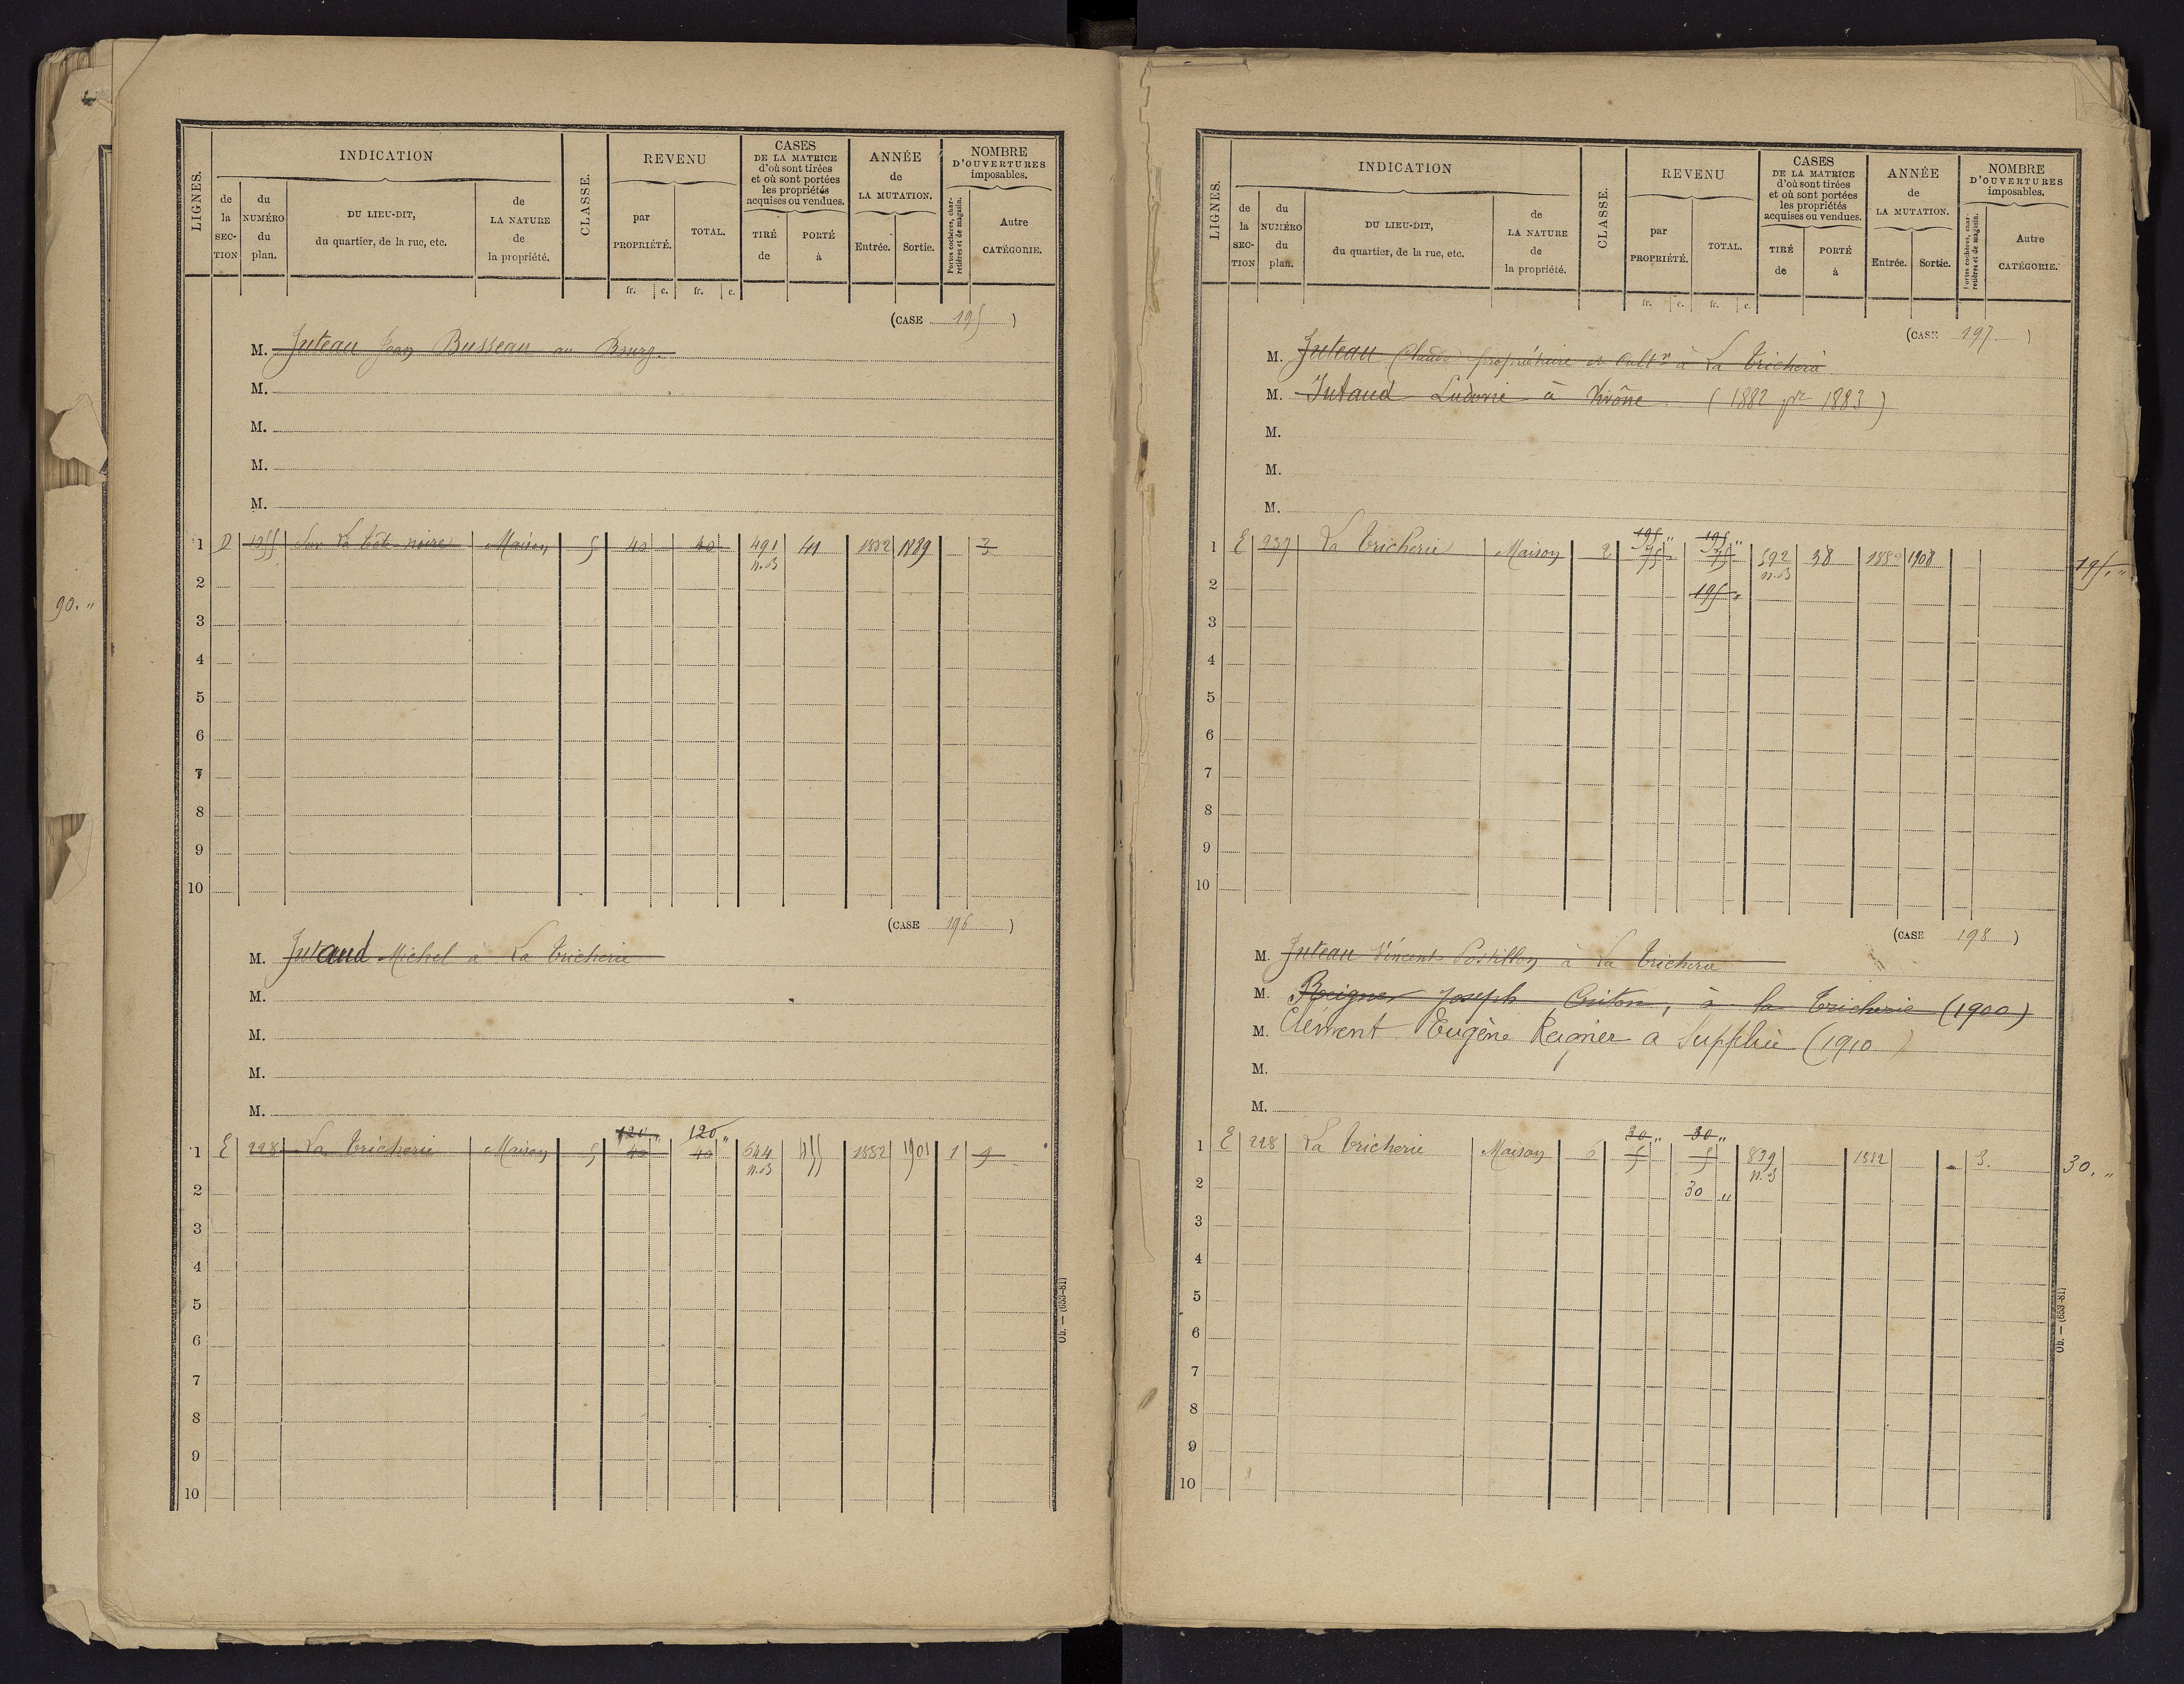 90. "
LIGNES.
INDICATION
de la SECTION
du NUMÉRO du plan.
DU LIEU-DIT, du quartier, de la rue, etc.
de LA NATURE de la propriété.
CLASSE.
REVENU
par PROPRIÉTÉ.
TOTAL.
fr. c. fr. c.
CASES DE LA MATRICE d'où sont tirées et où sont portées les propriétés acquises ou vendues.
TIRÉ de
PORTÉ à
ANNÉE de LA MUTATION.
Entrée. Sortie.
NOMBRE D'OUVERTURES imposables.
Portes cochères, charretières et de magasin.
Autre CATÉGORIE.
(CASE 195)
M. Juteau Jean Busseau au Bourg.
M.
M.
M.
M.
1 D 1355 Sur La Côte noire Maison 5 40 40 491 41 1882 1889 3
n.B
2
3
4
5
6
7
8
9
10
(CASE 196)
M. Jutaud Michel à La Tricherie
M.
M.
M.
M.
120 " 120 "
1 E 228 La Tricherie Maison 5 40 40 544 1882 1901 1 9
n.B
2
3
4
5
6
7
8
9
10
Ob. — (653-81)
LIGNES.
INDICATION
de la SECTION
du NUMÉRO du plan.
DU LIEU-DIT, du quartier, de la rue, etc.
de LA NATURE de la propriété.
CLASSE.
REVENU
par PROPRIÉTÉ.
TOTAL.
fr. c. fr. c.
CASES DE LA MATRICE d'où sont tirées et où sont portées les propriétés acquises ou vendues.
TIRÉ de
PORTÉ à
ANNÉE de LA MUTATION.
Entrée. Sortie.
NOMBRE D'OUVERTURES imposables.
Portes cochères, charretières et de magasin.
Autre CATÉGORIE.
(CASE 197)
M. Juteau Claude propriétaire et Cultr à La Tricherie
M. Jutaud Ludovic à (1882 pr 1883)
M.
M.
M.
195 " 195 "
1 E 237 La Tricherie Maison 2 75 75 592 38 1882 1908 195. "
n.B
2 195 "
3
4
5
6
7
8
9
10
(CASE 198)
M. Juteau Vincent Postillon à La Tricherie
M. Reigner Joseph, à la Tricherie (1900)
M. Clément Eugène Reigner a (1910)
M.
M.
30 " 30 "
1 E 228 La Tricherie Maison 6 5 5 839 1882 3. 30. "
n.B
2 30 "
3
4
5
6
7
8
9
10
Ob. — (653-81)